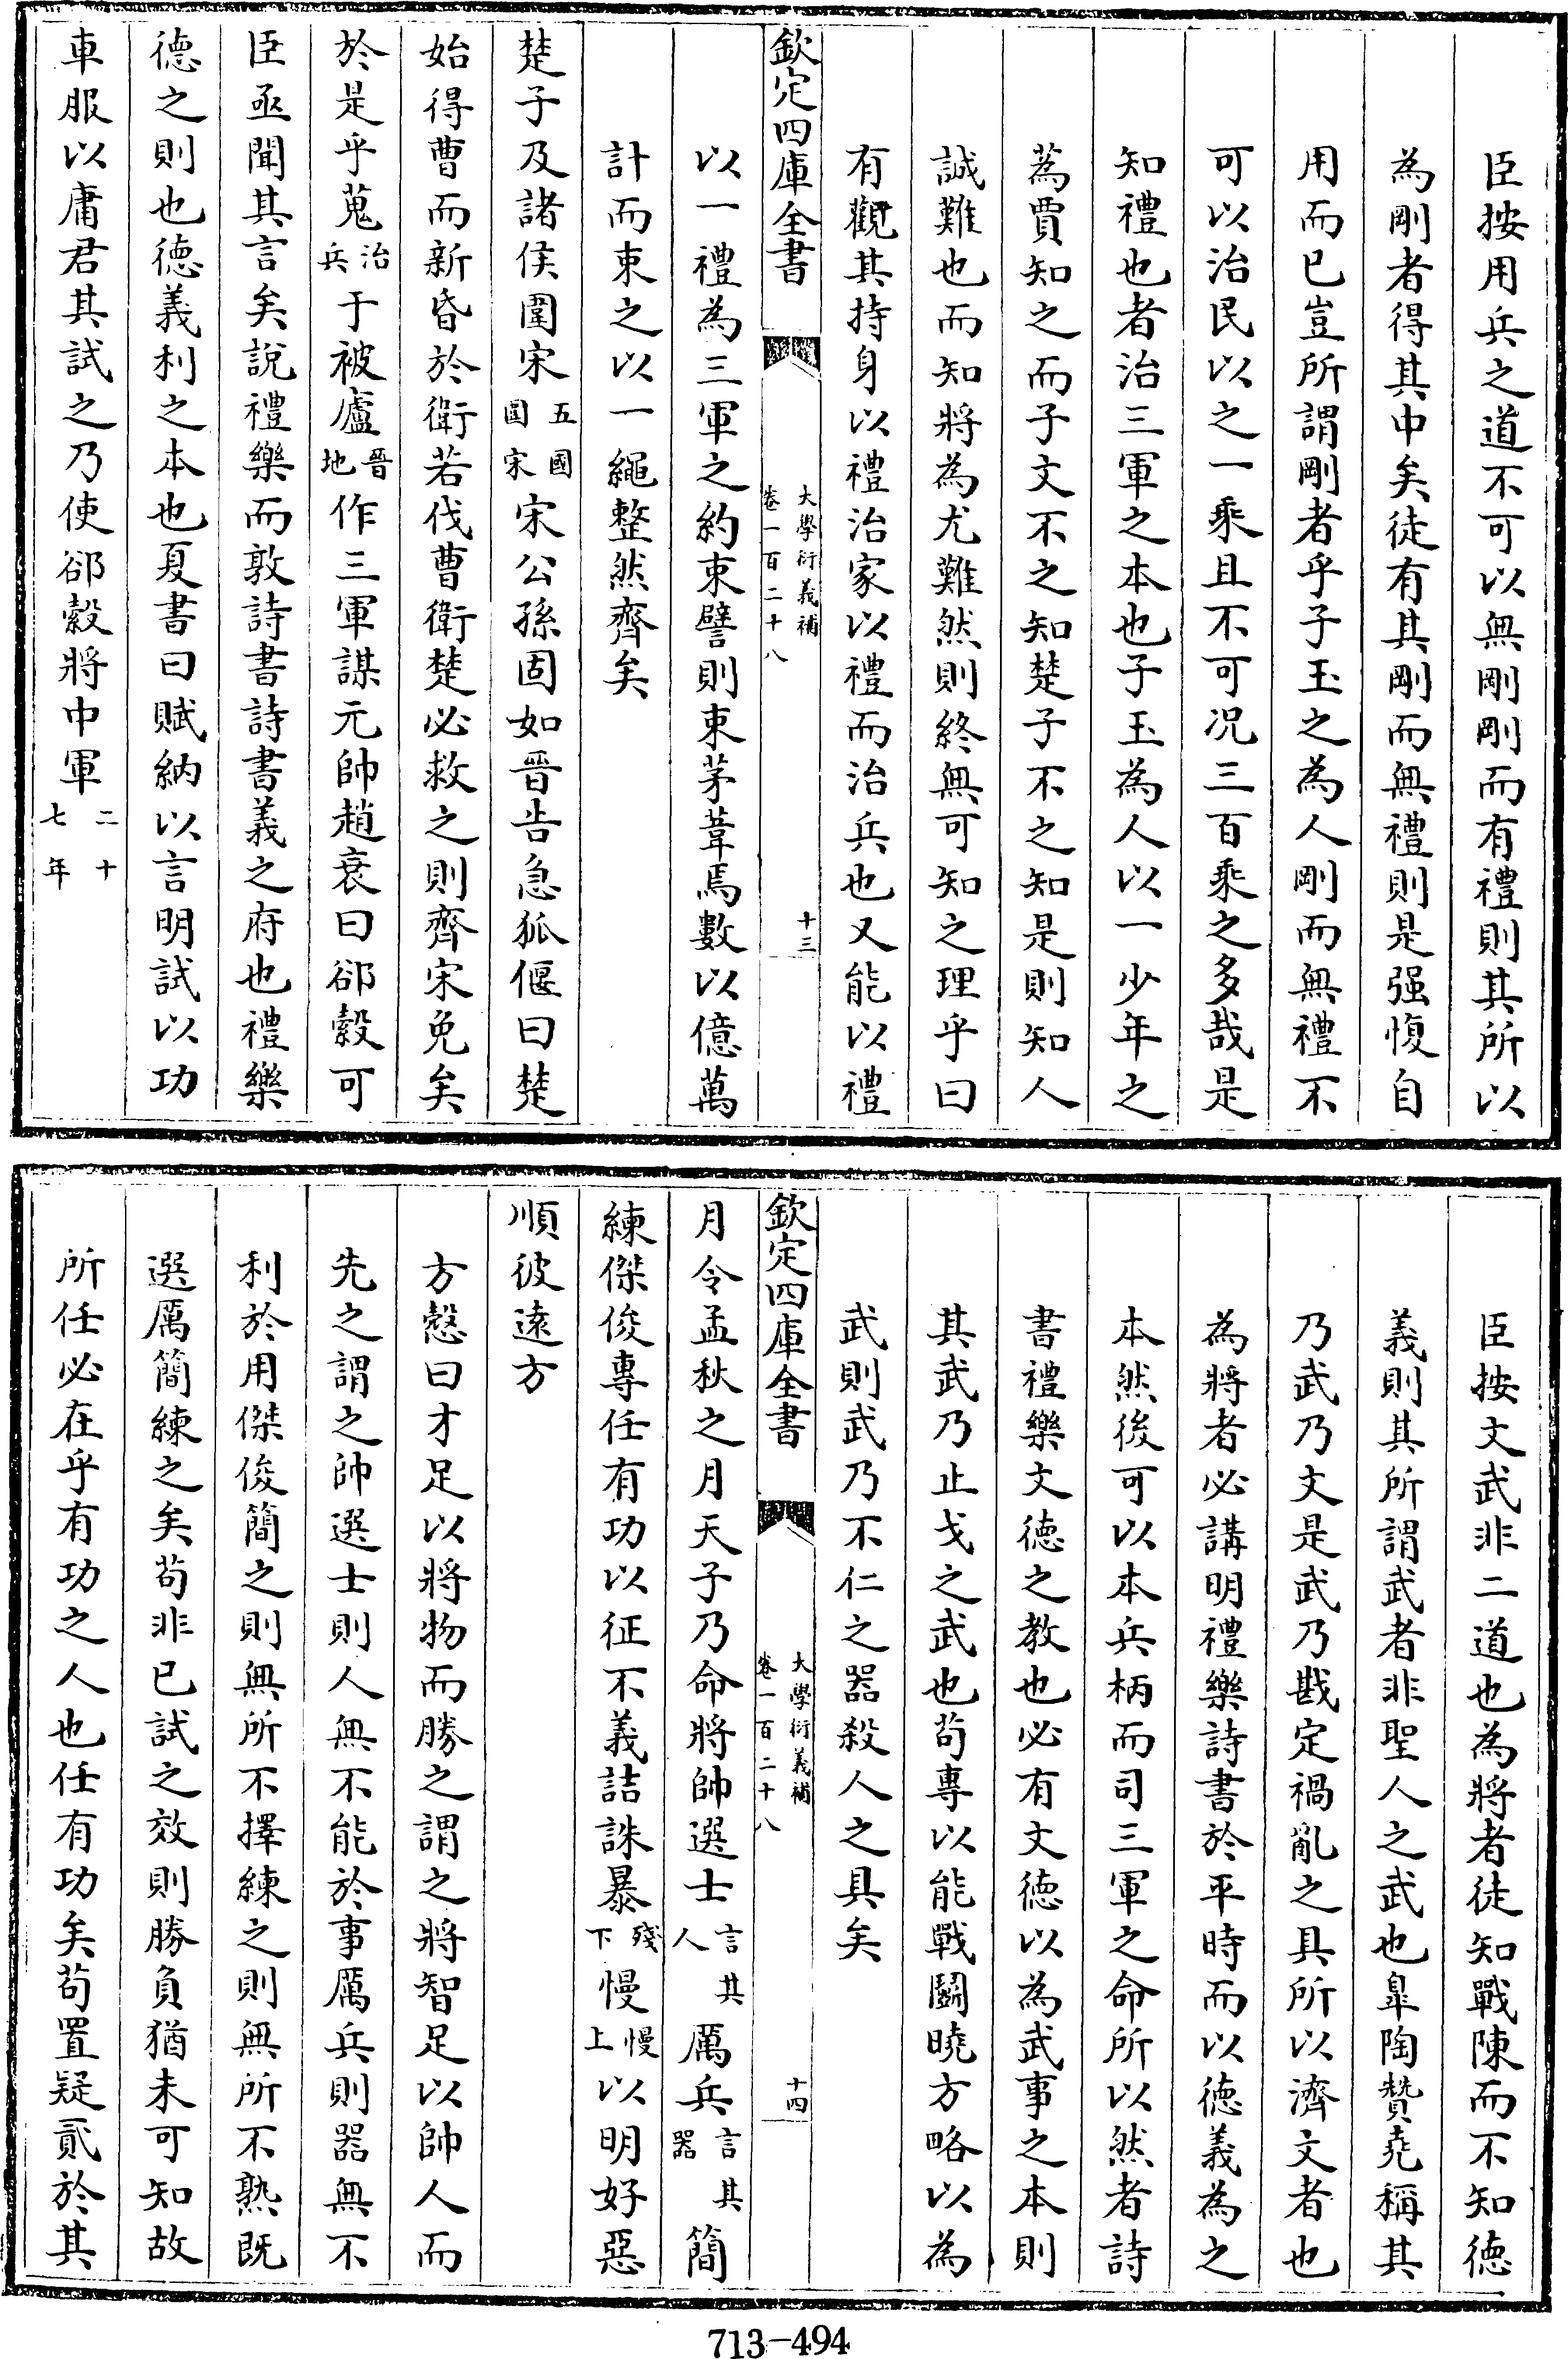 臣按用兵之道不可以無剛剛而有禮則其所以
為剛者得其中矣徒有其剛而無禮則是强愎自
用而已豈所謂剛者乎子玉之為人剛而無禮不
可以治民以之一乘且不可况三百乘之多哉是
知禮也者治三軍之本也子玉為人以一少年之
蒍賈知之而子文不之知楚子不之知是則知人
誠難也而知將為尤難然則終無可知之理乎曰
有觀其持身以禮治家以禮而治兵也又能以禮
欽定四庫全書
大學衍義補
卷一百二十八
十三
以一禮為三軍之約束譬則束茅葦焉數以億萬
計而束之以一繩整然齊矣
楚子及諸侯圍宋五國圍宋宋公孫固如晉告急狐偃曰楚
始得曹而新昏於衛若伐曹衛楚必救之則齊宋免矣
於是乎蒐治兵于被廬晉地作三軍謀元帥趙衰曰郤縠可
臣亟聞其言矣說禮樂而敦詩書詩書義之府也禮樂
德之則也德義利之本也夏書曰賦納以言明試以功
車服以庸君其試之乃使郤縠將中軍二十七年
臣按文武非二道也為將者徒知戰陳而不知德
義則其所謂武者非聖人之武也臯陶贊堯稱其
乃武乃文是武乃戡定禍亂之具所以濟文者也
為將者必講明禮樂詩書於平時而以德義為之
本然後可以本兵柄而司三軍之命所以然者詩
書禮樂文德之教也必有文德以為武事之本則
其武乃止戈之武也茍專以能戰鬭曉方略以為
武則武乃不仁之器殺人之具矣
欽定四庫全書
大學衍義補
卷一百二十八
十四
月令孟秋之月天子乃命將帥選士言其人厲兵言其器簡
練傑俊專任有功以征不義詰誅暴殘下慢慢上以明好惡
順彼遠方
方慤曰才足以將物而勝之謂之將智足以帥人而
先之謂之帥選士則人無不能於事厲兵則器無不
利於用傑俊簡之則無所不擇練之則無所不熟既
選厲簡練之矣茍非已試之效則勝負猶未可知故
所任必在乎有功之人也任有功矣茍置疑貳於其
713-494